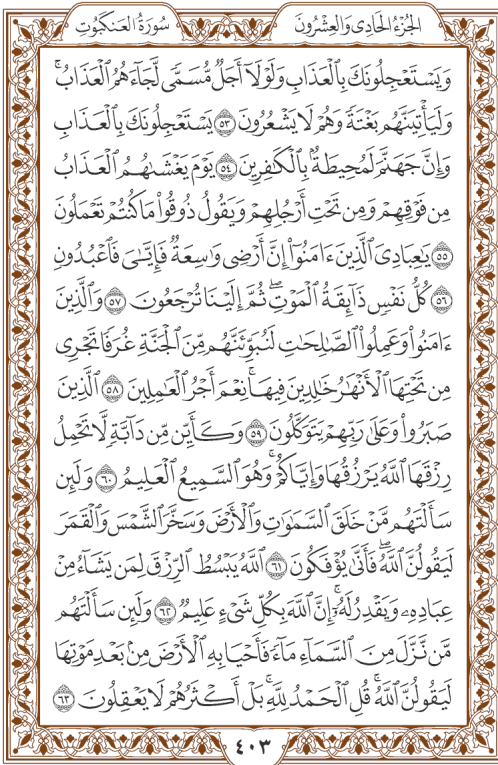 الجُزْءُ الحَادِي وَالعِشْرُونَ
سُورَةُ العَنكَبُوتِ
وَيَسْتَعْجِلُونَكَ بِٱلْعَذَابِ وَلَوْلَآ أَجَلٌ مُّسَمًّى لَّجَآءَهُمُ ٱلْعَذَابُۚ
وَلَيَأْتِيَنَّهُم بَغْتَةً وَهُمْ لَا يَشْعُرُونَ ٥٣ يَسْتَعْجِلُونَكَ بِٱلْعَذَابِ
وَإِنَّ جَهَنَّمَ لَمُحِيطَةٌۢ بِٱلْكَٰفِرِينَ ٥٤ يَوْمَ يَغْشَىٰهُمُ ٱلْعَذَابُ
مِن فَوْقِهِمْ وَمِن تَحْتِ أَرْجُلِهِمْ وَيَقُولُ ذُوقُوا۟ مَا كُنتُمْ تَعْمَلُونَ
٥٥ يَٰعِبَادِىَ ٱلَّذِينَ ءَامَنُوٓا۟ إِنَّ أَرْضِى وَٰسِعَةٌ فَإِيَّٰىَ فَٱعْبُدُونِ
٥٦ كُلُّ نَفْسٍ ذَآئِقَةُ ٱلْمَوْتِۖ ثُمَّ إِلَيْنَا تُرْجَعُونَ ٥٧ وَٱلَّذِينَ
ءَامَنُوا۟ وَعَمِلُوا۟ ٱلصَّٰلِحَٰتِ لَنُبَوِّئَنَّهُم مِّنَ ٱلْجَنَّةِ غُرَفًا تَجْرِى
مِن تَحْتِهَا ٱلْأَنْهَٰرُ خَٰلِدِينَ فِيهَاۚ نِعْمَ أَجْرُ ٱلْعَٰمِلِينَ ٥٨ ٱلَّذِينَ
صَبَرُوا۟ وَعَلَىٰ رَبِّهِمْ يَتَوَكَّلُونَ ٥٩ وَكَأَيِّن مِّن دَآبَّةٍ لَّا تَحْمِلُ
رِزْقَهَا ٱللَّهُ يَرْزُقُهَا وَإِيَّاكُمْۚ وَهُوَ ٱلسَّمِيعُ ٱلْعَلِيمُ ٦٠ وَلَئِن
سَأَلْتَهُم مَّنْ خَلَقَ ٱلسَّمَٰوَٰتِ وَٱلْأَرْضَ وَسَخَّرَ ٱلشَّمْسَ وَٱلْقَمَرَ
لَيَقُولُنَّ ٱللَّهُۖ فَأَنَّىٰ يُؤْفَكُونَ ٦١ ٱللَّهُ يَبْسُطُ ٱلرِّزْقَ لِمَن يَشَآءُ مِنْ
عِبَادِهِۦ وَيَقْدِرُ لَهُۥٓۚ إِنَّ ٱللَّهَ بِكُلِّ شَىْءٍ عَلِيمٌ ٦٢ وَلَئِن سَأَلْتَهُم
مَّن نَّزَّلَ مِنَ ٱلسَّمَآءِ مَآءً فَأَحْيَا بِهِ ٱلْأَرْضَ مِنۢ بَعْدِ مَوْتِهَا
لَيَقُولُنَّ ٱللَّهُۚ قُلِ ٱلْحَمْدُ لِلَّهِۚ بَلْ أَكْثَرُهُمْ لَا يَعْقِلُونَ ٦٣
٤٠٣